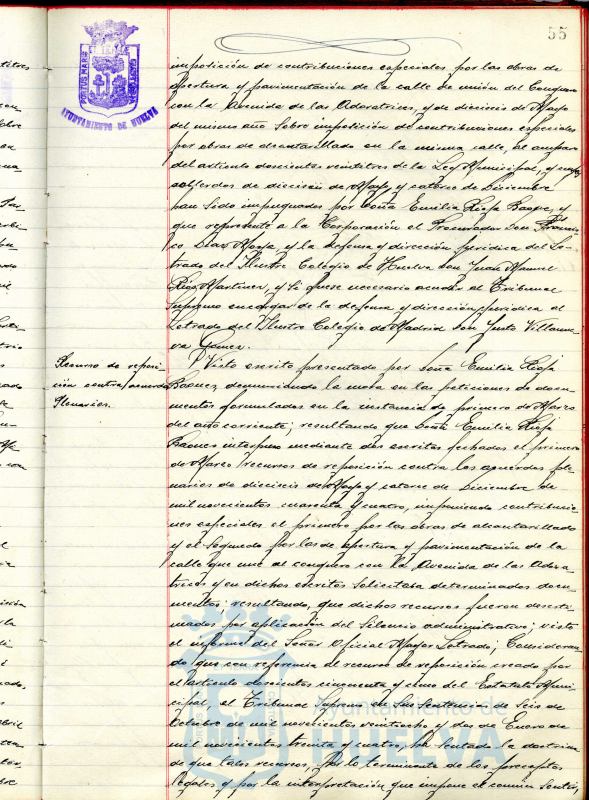 55
PORTUS MARIS
AYUNTAMIENTO DE HUELVA
imposición de contribuciones especiales por las obras de
apertura y pavimentación de la calle de unión del Conquero
con la Avenida de las Adoratrices, y de dieciseis de Mayo
del mismo año sobre imposición de contribuciones especiales
por obras de alcantarillado en la misma calle, al amparo
del artículo doscientos veintitres de la Ley Municipal, y cuyos
acuerdos de dieciseis de Mayo y catorce de Diciembre
han sido impugnados por Doña Emilia Rioja y
que represente a la Corporación el Procurador Don
Díaz y la defensa y dirección jurídica del Le-
trado del Ilustre Colegio de Huelva Don Juan Manuel
Martínez, y si fuese necesario acudir al Tribunal
Supremo encargar de la defensa y dirección jurídica al
Letrado del Ilustre Colegio de Madrid Don Justo Villanue-
va Gómez.
Recurso de reposi-
ción contra acuerdos
Plenarios.
Visto escrito presentado por Doña Emilia Rioja
denunciando la mora en las peticiones de docu-
mentos formuladas en la instancia de primero de Marzo
del año corriente; resultando que Doña Emilia Rioja
interpuso mediante dos escritos fechados el primero
de Marzo recursos de reposición contra los acuerdos ple-
narios de dieciseis de Mayo y catorce de Diciembre de
mil novecientos cuarenta y cuatro, imponiendo contribucio-
nes especiales el primero por las obras de alcantarillado
y el segundo por las de apertura y pavimentación de la
calle que une al conquero con la Avenida de las Adora-
trices y en dichos escritos solicitaba determinados docu-
mentos; resultando, que dichos recursos fueron desesti-
mados por aplicación del silencio administrativo; visto
el informe del Señor Oficial Mayor Letrado; Consideran-
do que con referencia al recurso de reposición creado por
el artículo doscientos cincuenta y cinco del Estatuto Muni-
cipal, el Tribunal Supremo en sus sentencias de seis de
Octubre de mil novecientos veintiocho y dos de Enero de
mil novecientos treinta y cuatro, ha sentado la doctrina
de que tales recursos, por lo terminante de los preceptos
legales y por la interpretación que impone el común sentir,
Ayuntamiento de
HUELVA